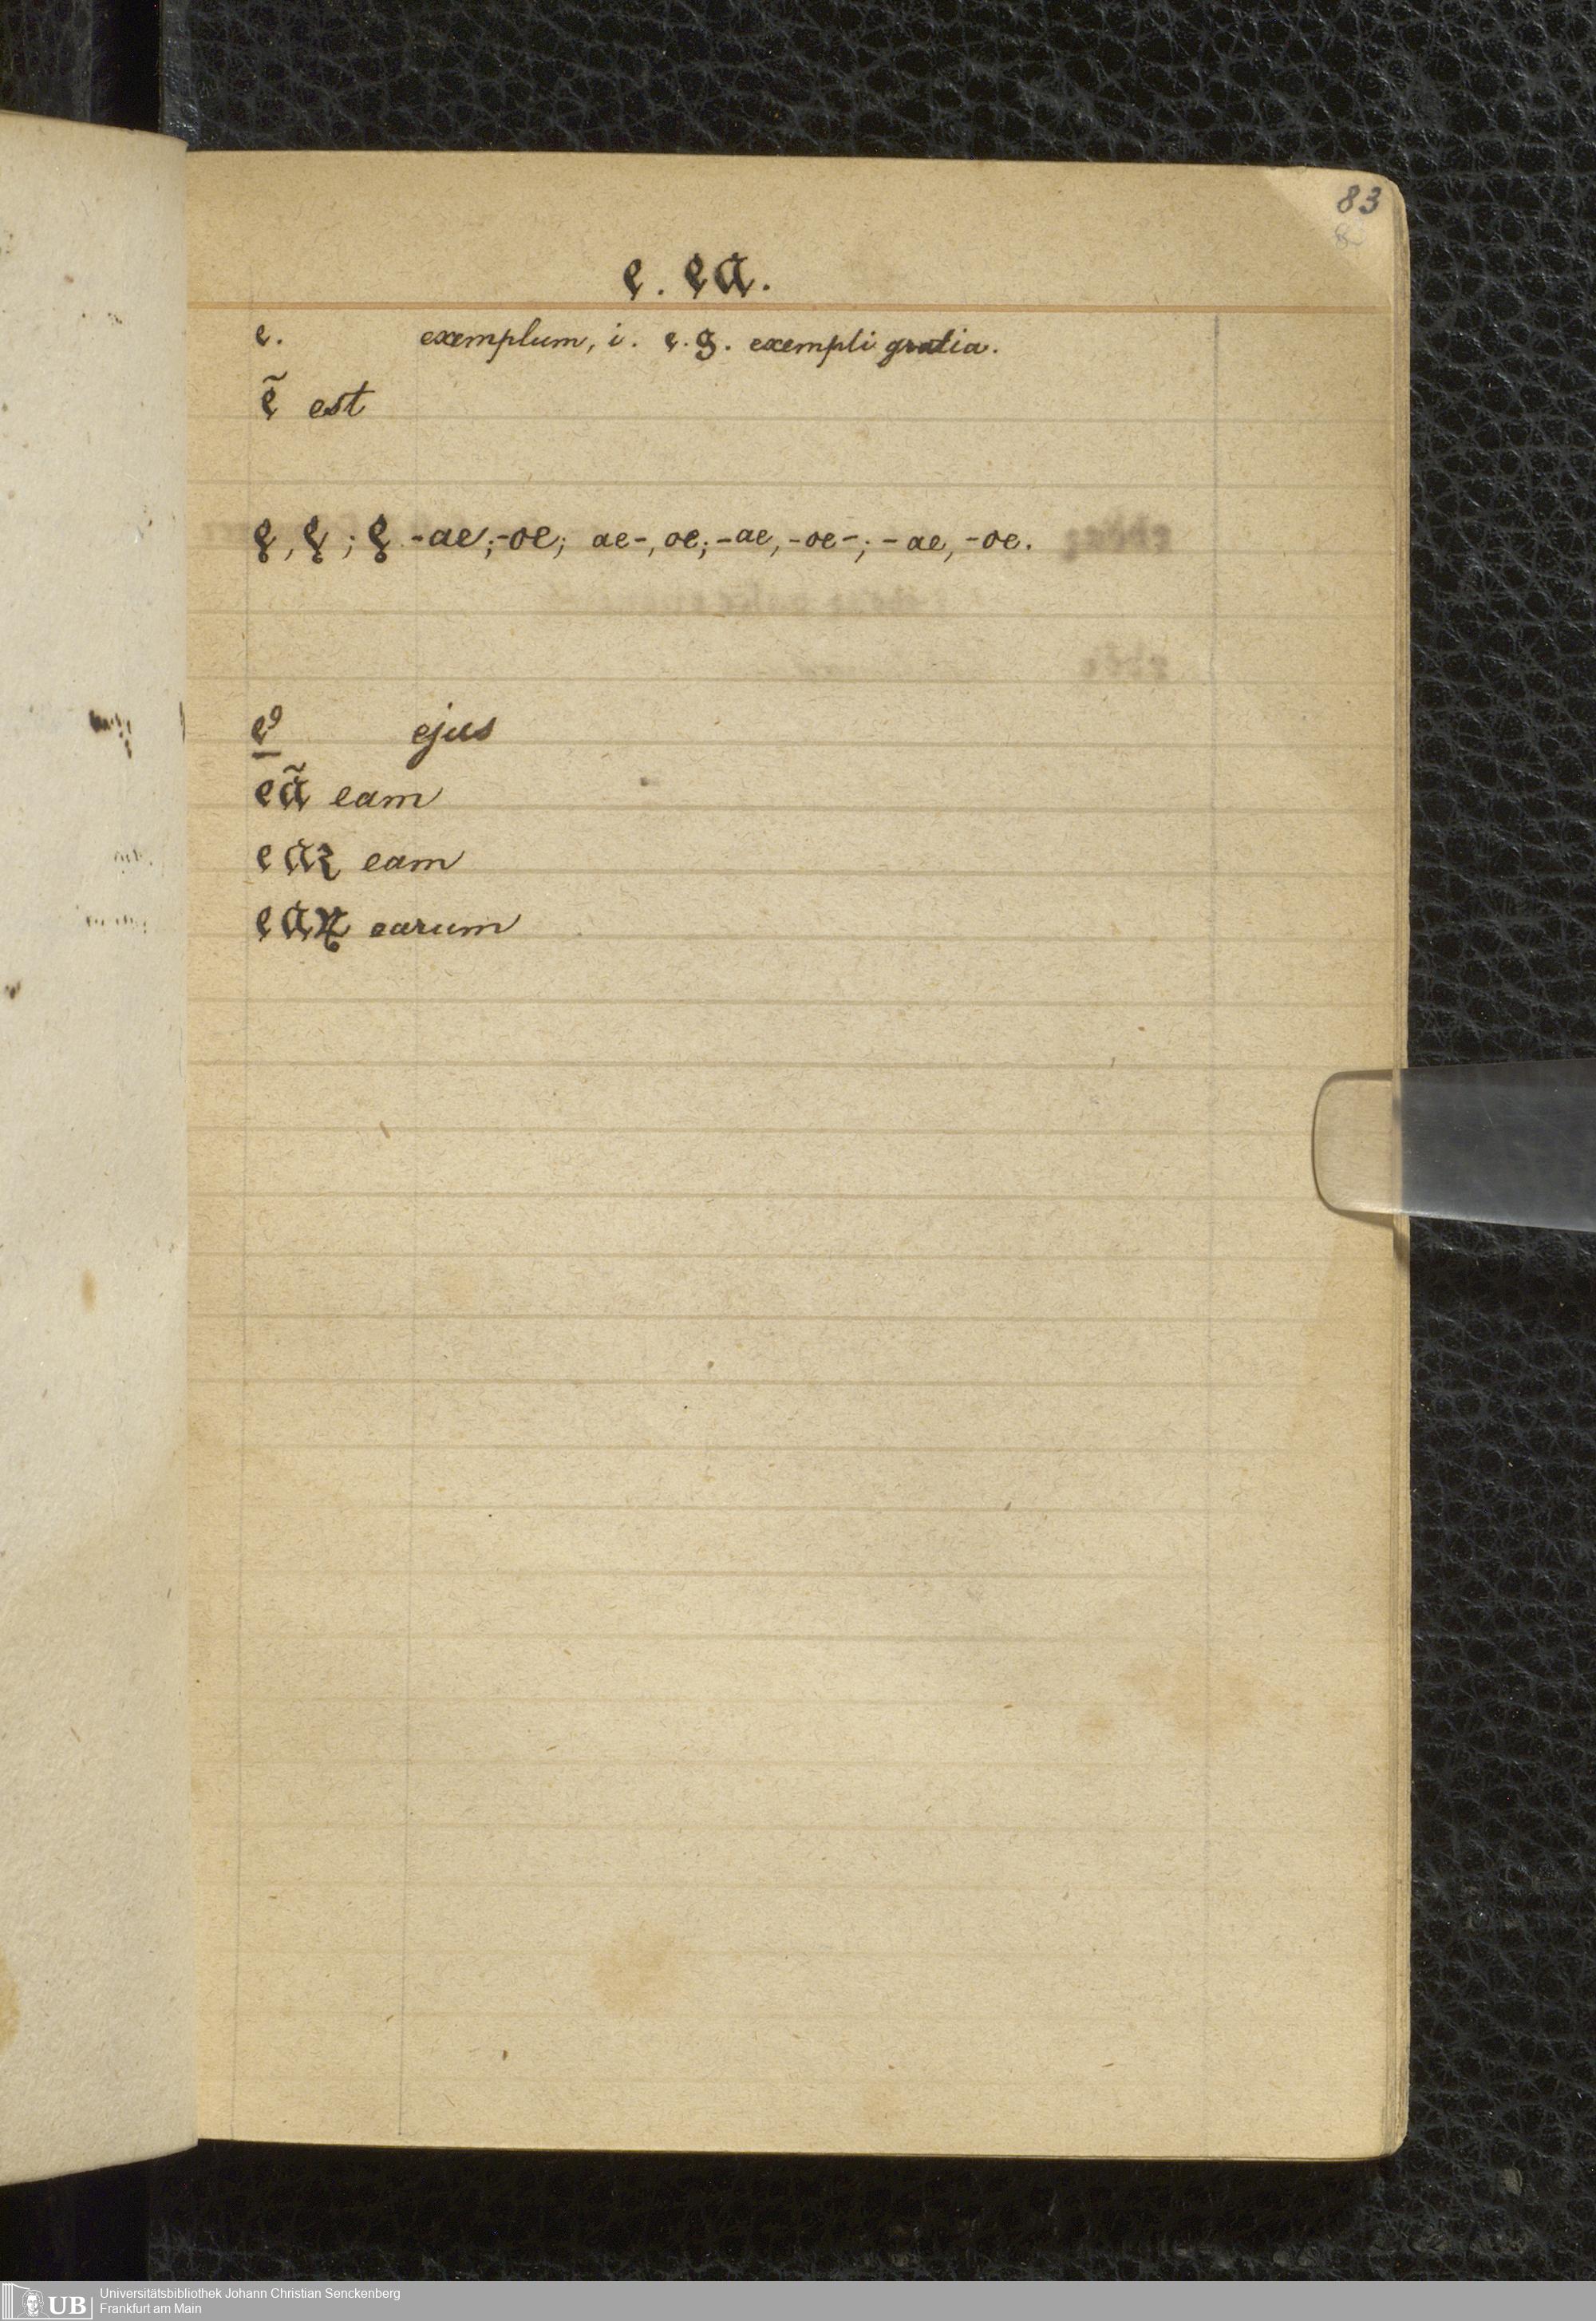 83
e. ea.
e. exemplum, i. e. g. exempli gratia.
ẽ est
ę, ę; ę -ae; -oe; ae-, oe; -ae, -oe-; -ae, -oe.
eꝰ ejus
eã eam
eaꝛ eam
eaꝝ earum
UB Universitätsbibliothek Johann Christian Senckenberg
Frankfurt am Main